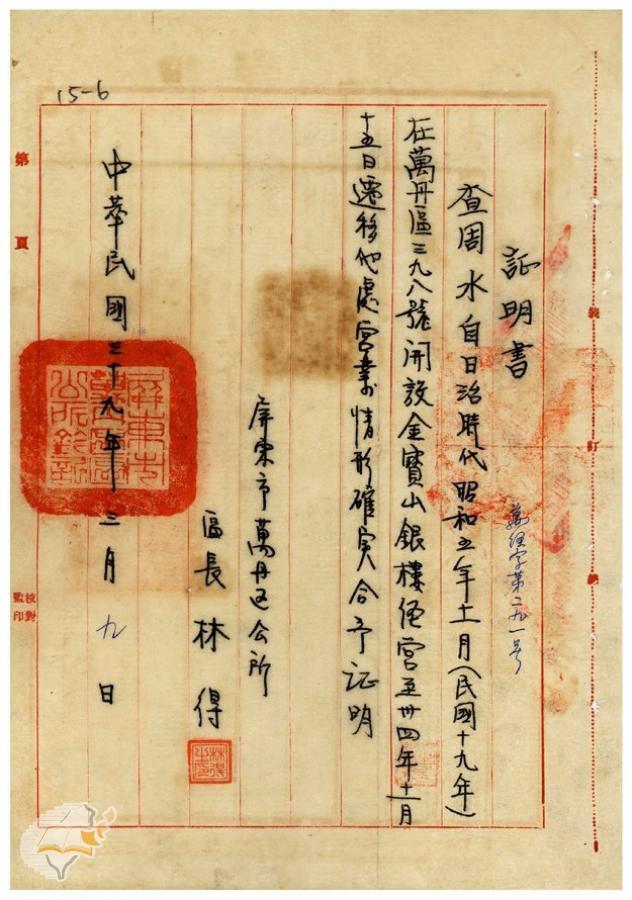 15-6
証明書
萬經字第二九一号
查周水自日治時代昭和五年十一月(民國十九年)
在萬丹區三九八號開設金寶山銀樓經营至卅四年十一月
十五日遷移他處营業情形確实合予証明
屏東市萬丹区公所
區長林得
中華民國三十九年三月九日
第 頁
裝 訂 線
校對
監印